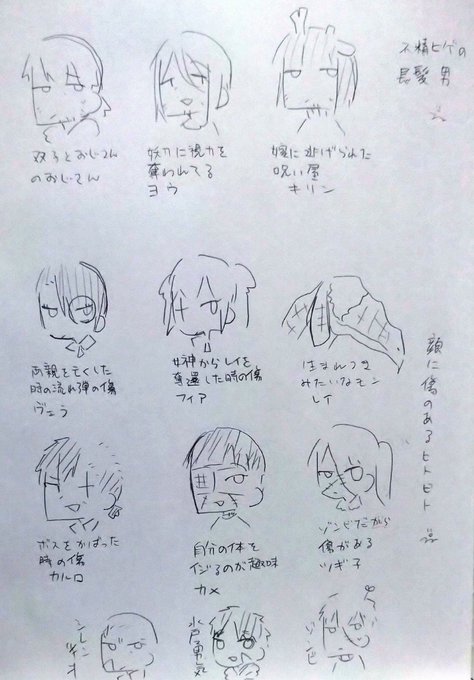 不精ヒゲの
長髪男
双子とおじさん
のおじさん
妖力に視力を
奪われてる
ヨウ
嫁に逃げられた
呪い屋
キリン
顔に傷のあるヒトビト
両親を亡くした
時の流れ弾の傷
ヴェラ
女神からレイを
奪還した時の傷
フィア
生まれつき
みたいなモン
レイ
ボスをかばった
時の傷
カルロ
自分の体を
イジるのが趣味
カメ
ゾンビだから
傷がある
ツギ子
シレン
水戸勇気
ゾンビ